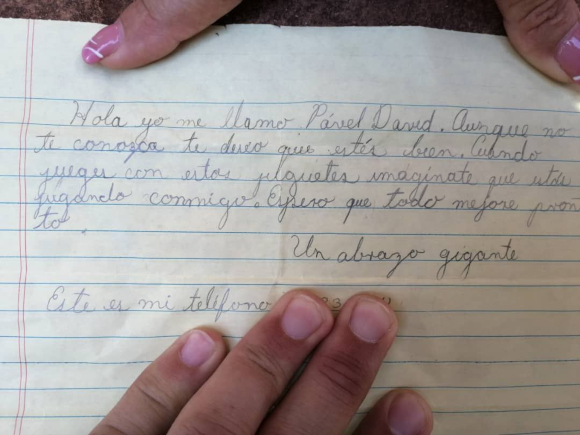 Hola yo me llamo Pável David. Aunque no
te conozca te deseo que estés bien. Cuando
jueges con estos juguetes imáginate que estás
jugando conmigo. Espero que todo mejore pron
to.
Un abrazo gigante
Este es mi teléfono